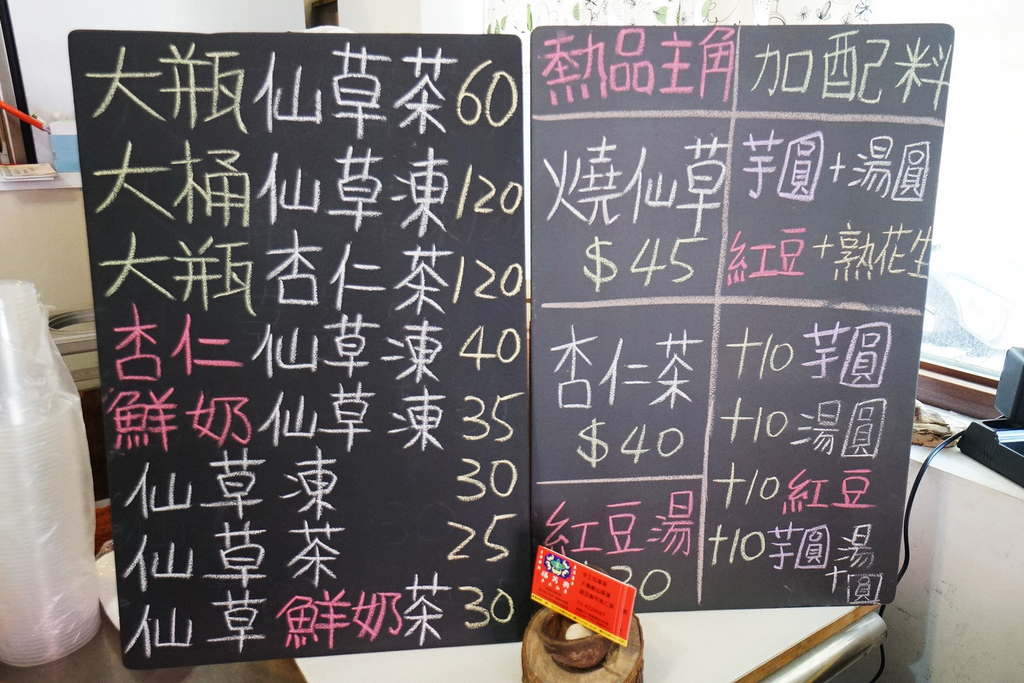 大瓶仙草茶60
大桶仙草凍120
大瓶杏仁茶120
杏仁仙草凍40
鮮奶仙草凍35
仙草凍 30
仙草茶 25
仙草鮮奶茶30
熱品主角 加配料
燒仙草
$45
芋圓+湯圓
紅豆+熟花生
杏仁茶
$40
+10芋圓
+10湯圓
+10紅豆
紅豆湯
+10芋圓+湯圓